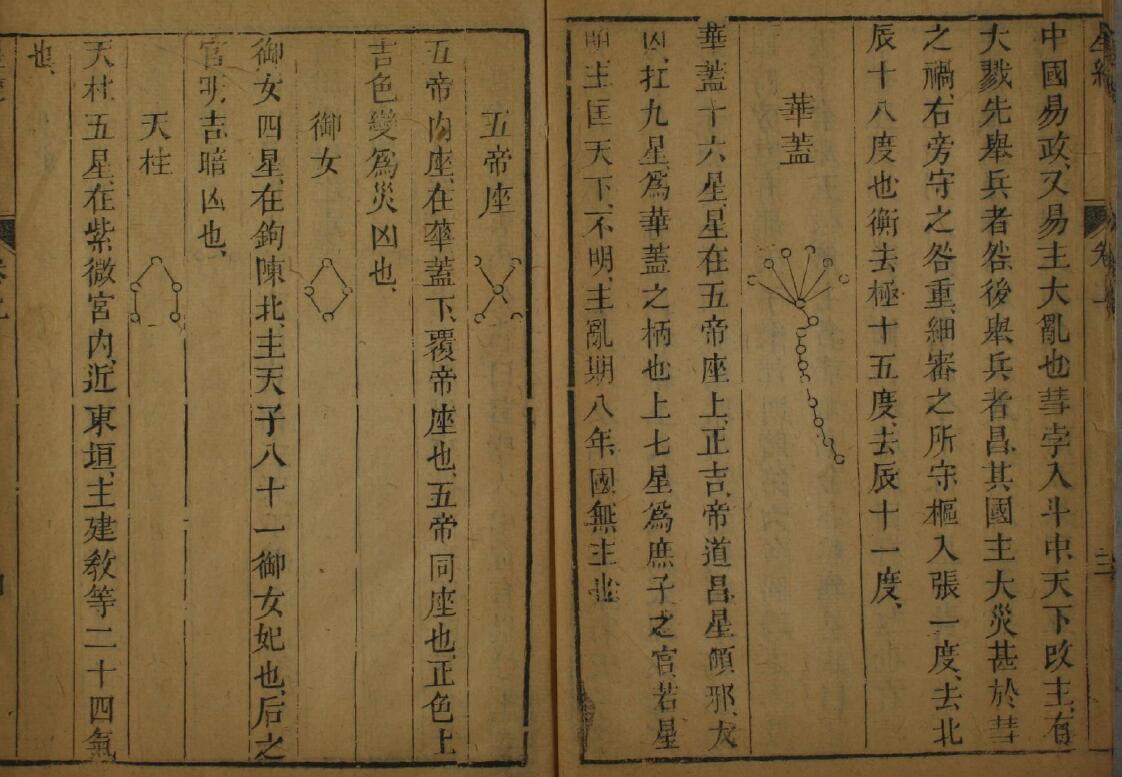 星經 卷上 三
中國易政、又易主大亂也彗孛入斗中、天下改主、有
大戮先舉兵者咎、後舉兵者昌、其國主大災甚於彗
之禍、右旁守之咎重、細審之所守樞入張一度、去北
辰十八度也衡去極十五度、去辰十一度、
華蓋
華蓋十六星、星在五帝座上、正吉、帝道昌星傾邪、大
凶、扛九星、爲華蓋之柄也上七星爲庶子之官、若星
明主匡天下、不明、主亂期八年、國無主也
五帝座
五帝內座、在華蓋下、覆帝座也、五帝同座也、正色上
吉色變爲災凶也、
御女
御女四星、在鉤陳北、主天子八十一御女妃也、后之
官明、吉暗凶也、
天柱
天柱五星、在紫微宮內、近東垣、主建敎等二十四氣
也、